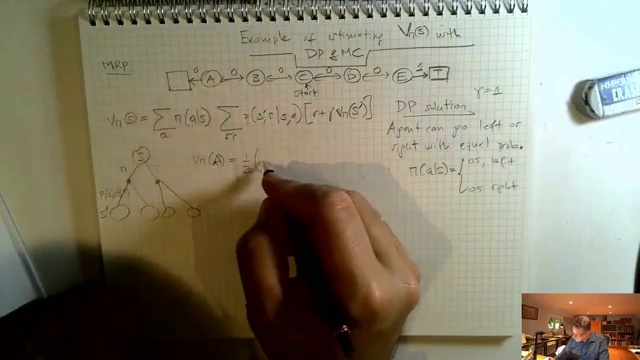 Example of estimating Vπ(s) with
DP & MC
MRP
0 A 0 B 0 C 0 D 0 E 1 T
start
Vπ(s) = Σ π(a|s) Σ p(s',r|s,a) [r + γ Vπ(s')]
a s'r
DP solution γ=1
Agent can go left or
right with equal prob.
π(a|s) = { 0.5, left
0.5 right
Vπ(A) = 1/2 (
S
π
s'